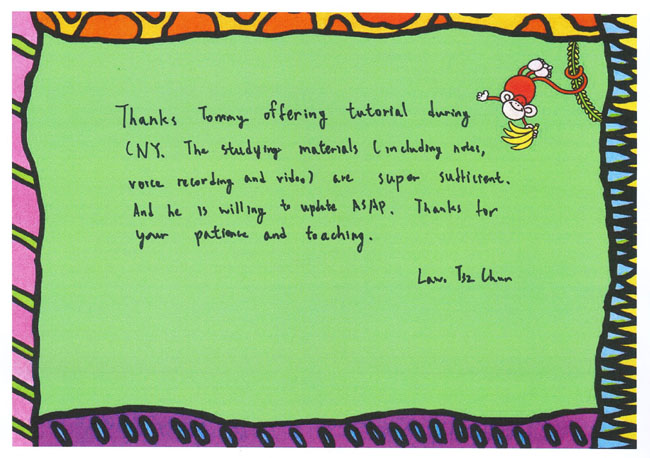 Thanks Tommy offering tutorial during
CNY. The studying materials (including notes,
voice recording and video) are super sufficient.
And he is willing to update ASAP. Thanks for
your patience and teaching.
Law, Tsz Chun